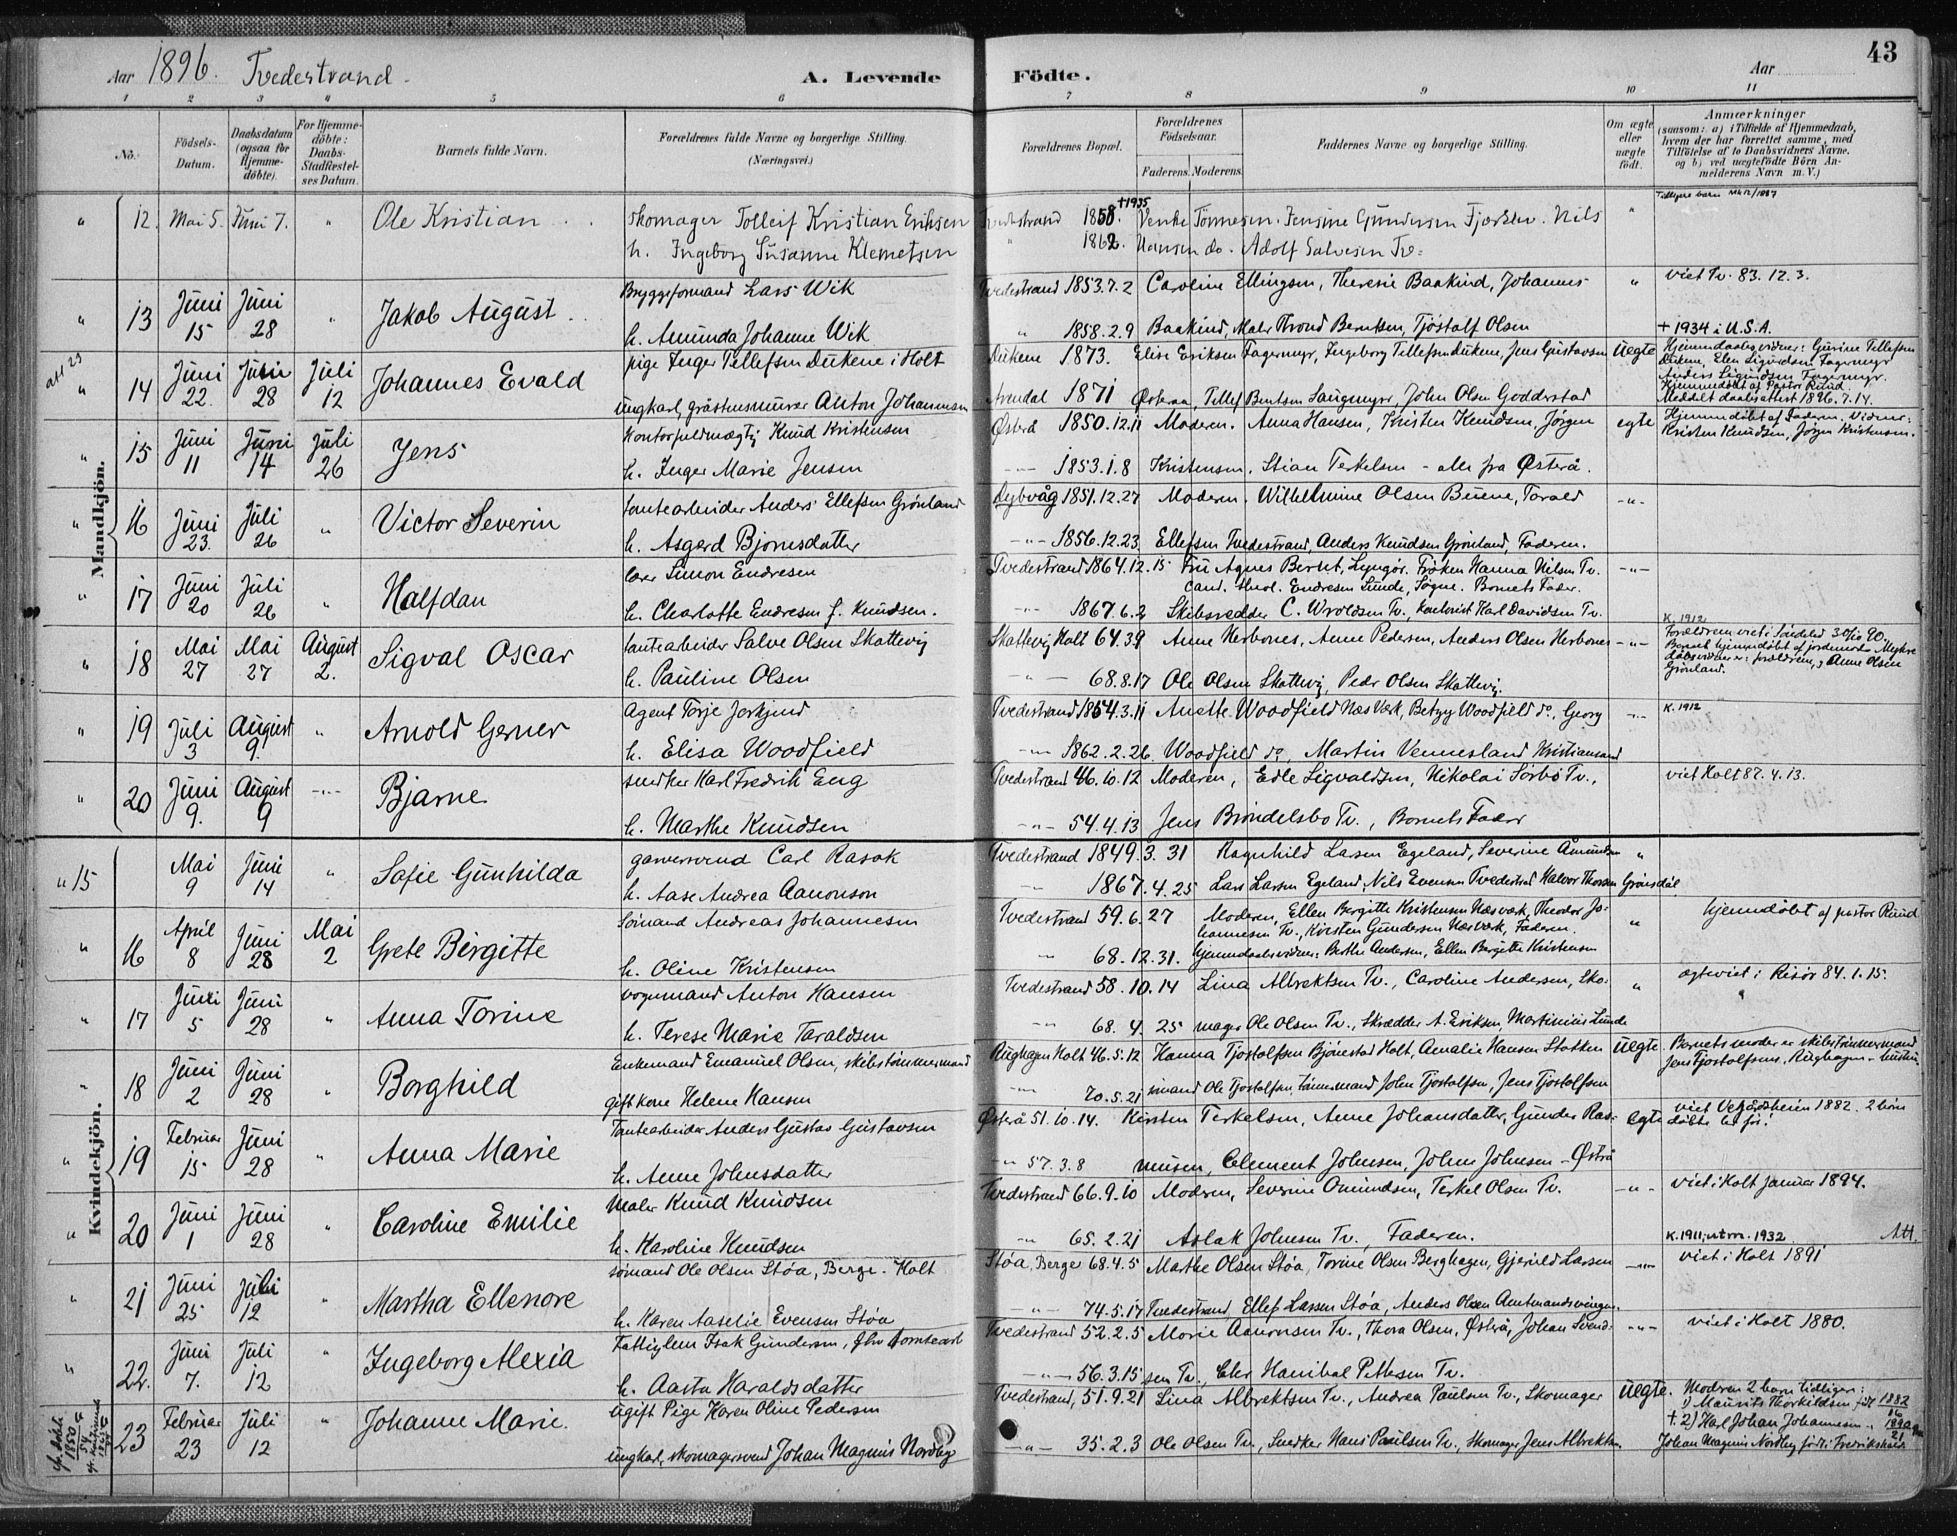 43
Aar 1896. Tvedestrand. A. Levende Födte. Aar
1 2 3 4 5 6 7 8 9 10 11
No. Födsels-Datum. Daabsdatum (ogsaa for Hjemme-döbte). For Hjemme-döbte: Daabs-Stadfæstel-ses Datum. Barnets fulde Navn. Forældrenes fulde Navne og borgerlige Stilling. (Næringsvei.) Forældrenes Bopæl. Forældrenes Födselsaar. Faderens. Moderens. Faddernes Navne og borgerlige Stilling. Om ægte eller uægte födt. Anmærkninger (saasom: a) i Tilfælde af Hjemmedaab, hvem der har forrettet samme, med Tilföielse af to Daabsvidners Navne, og b) ved uægtefödte Börn An-melderens Navn m. V.)
Mandkjön.
" 12. Mai 5. Juni 7. " Ole Kristian Skomager Tolleif Kristian Eriksen Tvedestrand 1858. +1935 Venke Tönnesen. Jensine Gundersen Fjærkleiv. Nils "
h. Ingeborg Susanne Klemetsen " 1862. Hansen do. Adolf Salvesen Tv:
" 13 Juni 15 Juni 28 " Jakob August Bryggeformand Lars Wik Tvedestrand 1853.7.2 Caroline Ellingsen, Therese Baakind, Johannes " viet Tv. 83.12.3.
h. Amunda Johanne Wik " 1858.2.9 Baakind, Maler Thrond Berntsen, Tjöstolf Olsen + 1934 i U.S.A.
att 29
" 14 Juni 22 Juni 28 Juli 12 Johannes Evald pige Inger Tellefsen Dukene i Holt Dukene 1873. Elise Eriksen Fagermyr, Ingeborg Tellefsen Dukene, Jens Gustavsen Uegte Hjemmedaabsvidner: Gurine Tellefsen
Dukene, Elen Sigurdsen Fagermyr
Anders Sigundsen Fagermyr.
ungkarl, gråstensmurer Anton Johannesen Arendal 1871 Østeraa, Tellef Bentsen Laugmyr, John Olsen Godderstad Hjemmedöbt af Pastor Ruud.
Meddelt daabsattest 1896.7.14.
" 15 Juni 11 Juni 14 Juli 26 Jens Kontorfuldmægtig Knud Kristensen Østerå 1850.12.11 Moderen. Anna Hansen, Kristen Knudsen, Jørgen egte Hjemmedöbt af Faderen. Vidner:
Kristen Knudsen, Jørgen Kristensen.
h. Inger Marie Jensen -"- 1853.1.8 Kristensen, Stian Terkelsen - alle fra Østerå.
" 16 Juni 23. Juli 26 " Victor Severin tomtearbeider Anders Ellefsen Grønland Dybvåg 1851.12.27 Moderen. Wilhelmine Olsen Buene, Torald -"-
h. Asgerd Bjornsdatter -"- 1856.12.23. Ellefsen Tvedestrand, Anders Knudsen Grönland, Faderen.
" 17 Juni 20 Juli 26 " Halfdan Simon Endresen Tvedestrand 1864.12.15 Fru Agnes Bernt, Lyngör. Fröken Hanna Nilsen Tv. -"-
cand. theol. Endresen Sunde, Søgne. Barnets Fader.
h. Charlotte Endresen f. Knudsen. -"- 1867.6.2 Skibsredder C. Wroldsen Tv., kontorist Karl Davidsen Tv. K. 1912
" 18 Mai 27 Mai 27 August 2. Sigval Oscar tomtearbeider Salve Olsen Skattevig Skattevig Holt 64.3.9 Anne Herbones, Anne Pedersen, Anders Olsen Herbones -"- Forældrene viet i Söndeled 30/10 90.
Barnet hjemmedöbt af jordemoder Myhre
dåbsvidner er: forældrene, Anne Olsen
Grönland.
h. Pauline Olsen -"- 68.8.17 Ole Olsen Skattevig, Peder Olsen Skattevig.
" 19 Juli 3 August 9. " Arnold Gerner Agent Terje Jerkjend Tvedestrand 1854.3.11 Anette Woodfield Næs Værk, Betzy Woodfield do, Georg -"- K. 1912
h. Elisa Woodfield -"- 1862.2.26. Woodfield do, Martin Vennesland Kristiansand
" 20 Juni 9. August 9 -"- Bjarne snedker Karl Fredrik Eng Tvedestrand 46.10.12 Moderen, Edle Sigvaldsen, Nikolai Sörbö Tv., viet Holt 87.4.13.
h. Marthe Knudsen -"- 54.4.13 Jens Bröndelsbo Tv., Barnets Fader
Kvindekjön.
" 15 Mai 9 Juni 14 " Sofie Gunhilda garversvend Carl Rasok Tvedestrand 1849.3.31 Ragnhild Larsen Egeland, Severine Åmundsen "
h. Aase Andrea Aanonson -"- 1867.4.25 Lars Larsen Egeland, Nils Evensen Tvedestrand Halvor Thorsen Grönsdal
" 16 April 8 Juni 28 Mai 2 Grete Birgitte Sömand Andreas Johannesen Tvedestrand 59.6.27 Moderen, Ellen Birgitte Kristensen Næsværk, Theodor Jo- " hjemdöbt af pastor Ruud
hannesen Tv., Kirsten Gundersen Næsværk, Faderen.
h. Oline Kristensen " 68.12.31. hjemmedaabsvidner: Berthe Andersen, Ellen Birgitte Kristensen
" 17 Juni 5 Juni 28 " Anna Torine vognmand Anton Hansen Tvedestrand 58.10.14 Lina Albrektsen Tv., Caroline Andersen, Sko- " egteviet i Risör 84.1.15.
h. Terese Marie Taraldsen -"- 68.4.25 mager Ole Olsen Tv., Skrædder A. Eriksen, Martinius Lunde
" 18 Juni 2 Juni 28 " Borghild Enkemand Emanuel Olsen, skibstömmermand Rughagen Holt 46.5.12 Hanna Tjostolfsen Bjönestad Holt, Amalie Hansen Uegte. Barnets moder er skibstömmermand
Jens Tjostolfsens, Rughagen - hustru.
gift kone Helene Hansen -"- 70.5.21 sömand Ole Tjostolfsen, tömmermand John Tjostolfsen, Jens Tjostolfsen
" 19 Februar 15 Juni 28 " Anna Marie Tomtearbeider Anders Gustav Gustavsen Østerå 51.10.14. Kirsten Terkelsen, Anne Johansdatter, Gunder Ras- egte viet Vegårdsheien 1882. 2 börn
döbte her för.
h. Anne Johnsdatter -"- 57.3.8 mussen, Clement Johnsen, John Johnsen - Østerå
" 20 Juni 1 Juni 28 " Caroline Emilie Maler Knud Knudsen Tvedestrand 66.9.10 Moderen, Severine Omundsen, Terkel Olsen Tv. -"- viet i Holt Januar 1894.
h. Karoline Knudsen " 65.2.21 Aslak Johnsen Tv., Faderen. K. 1911, utm. 1932. Att.
" 21 Juni 25 Juli 12 " Martha Ellenore sömand Ole Olsen Støa, Berge - Holt Støa, Berge 68.4.5 Marthe Olsen Støa, Torine Olsen Berghagen, Gjerulf Larsen -"- viet i Holt 1891
h. Karen Aaselie Evensen Støa -"- 74.5.17 Tvedestrand, Ellef Larsen Støa, Anders Olsen Amtmandsvingen.
" 22. Juni 7. Juli 12 " Ingeborg Alexia Fattiglem Isak Gundersen, Tvedestrand 52.2.5 Marie Aanonsen Tv., Thora Olsen, Østerå, Johan Svend- -"- viet i Holt 1880.
h. Aasta Haraldsdatter -"- 56.3.15 sen Tv., Hanibal Pettersen Tv.
23 Februar 23 Juli 12 " Johanne Marie. Ugift Pige Karen Oline Pedersen Tvedestrand, 51.9.21 Lina Albrektsen Tv., Andrea Paulsen Tv., Skomager Uegte. Moderen 2 barn tidligere:
1) Maurits Thorkildsen föd 1882
+ 2) Karl Johan Johannesen
ungkarl, skomagersvend Johan Magnus Nordby -"- 35.2.3 Ole Olsen Tv., Snedker Hans Paulsen Tv., Skomager Jens Albrektsen. Johan Magnus Nordby född i Fredrikshald